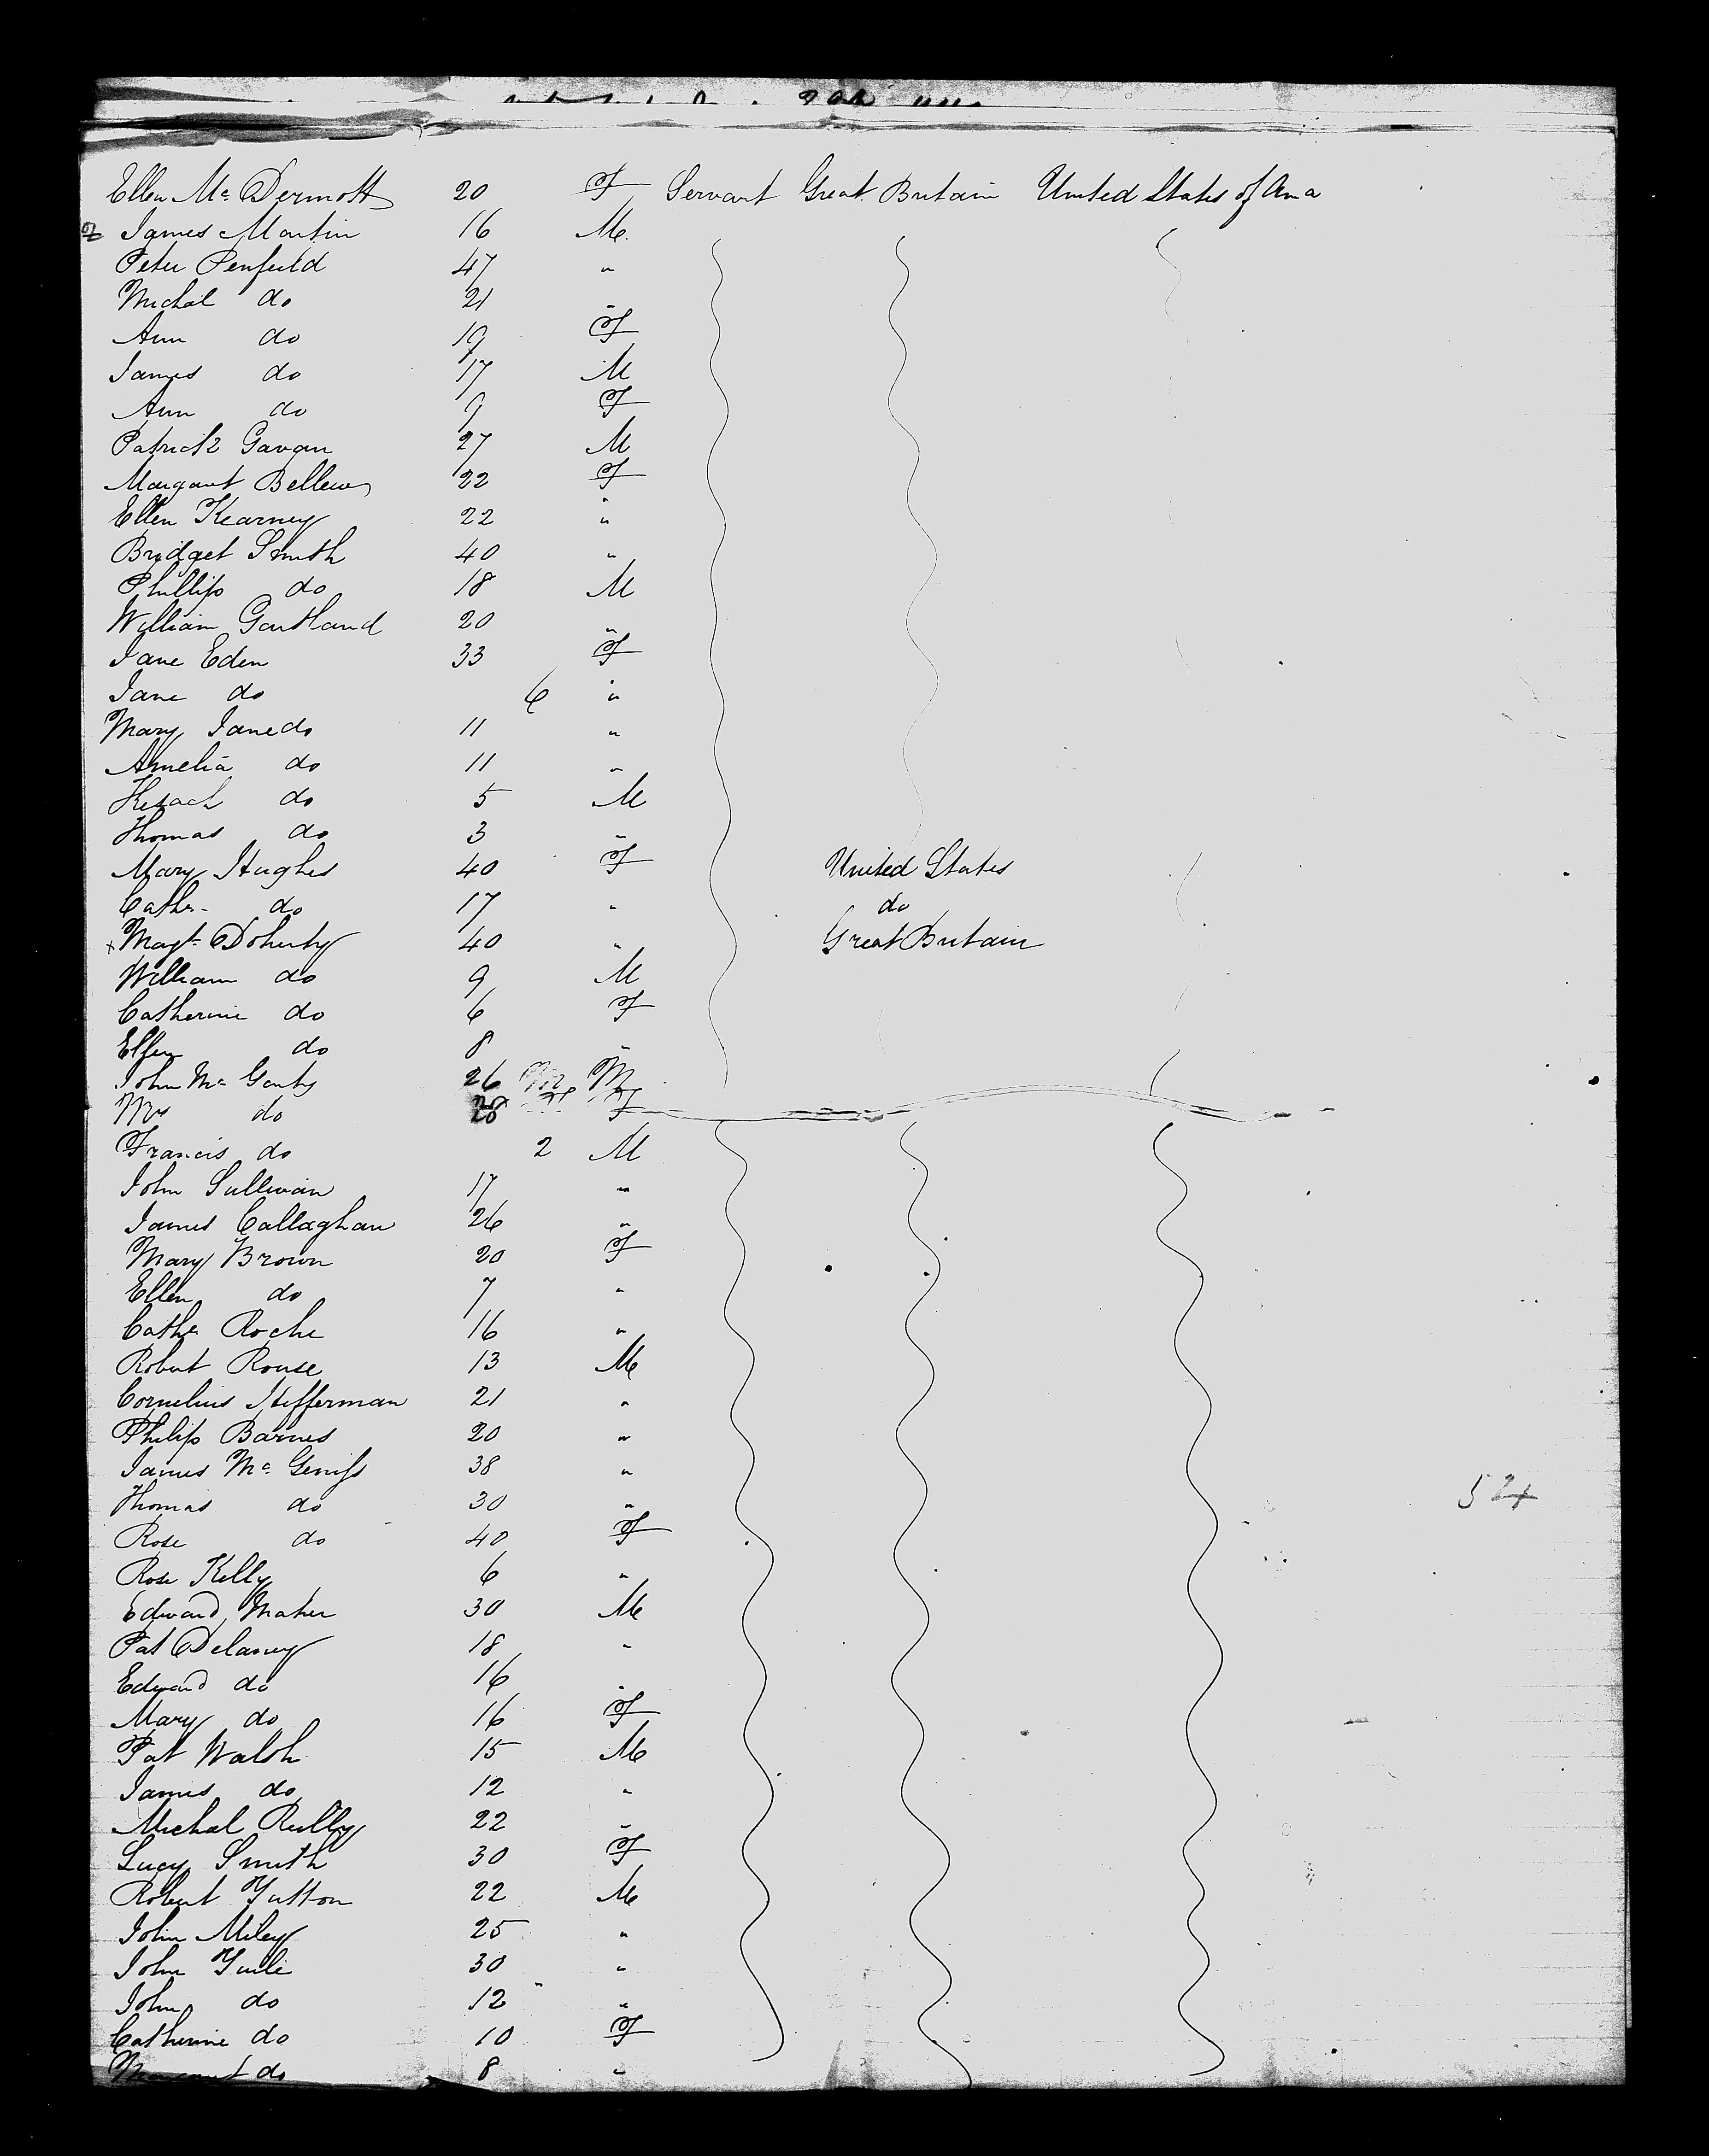 Ellen Mc Dermott 20 F Servant Great Britain United States of Ama
James Martin 16 M
Peter Penfield 47 "
Michal do 21 "
Ann do 19 F
James do 17 M
Ann do 9 F
Patrick Gavan 27 M
Margaret Bellew 22 F
Ellen Kearney 22 "
Bridget Smith 40 "
Phillip do 18 M
William Gartland 20 "
Jane Eden 33 F
Jane do 6 "
Mary Jane do 11 "
Amelia do 11 "
do 5 M
Thomas do 3 "
Mary Hughes 40 F United States
Cathe. do 17 " do
x Magt. Doherty 40 " Great Britain
William do 9 M
Catherine do 6 F
Ellen do 8 "
John Mc Garty 26 M M
Mrs do F
Francis do 2 M
John Sullivan 17 "
James Callaghan 26 "
Mary Brown 20 F
Ellen do 7 "
Cathe Roche 16 "
Robert Rouse 13 M
Cornelius Hefferman 21 "
Philip Barnes 20 "
James Mc Geniss 38 "
Thomas do 30 " 524
Rose do 40 F
Rose Kelly 6 "
Edward Maher 30 M
Pat Delaney 18 "
Edward do 16 "
Mary do 16 F
Pat Walsh 15 M
James do 12 "
Michal Reilly 22 "
Lucy Smith 30 F
Robert Yutton 22 M
John Miley 25 "
John Yuile 30 "
John do 12 "
Catherine do 10 F
Margaret do 8 "